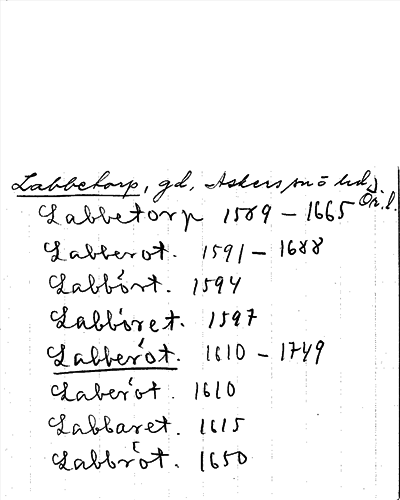 Labbetorp, gd, Askers sn o hd,
Ör.l.
Labbetorp 1589 – 1665
Labberot. 1591 – 1688
Labbórt. 1594
Labbóret. 1597
Labberót. 1610 – 1749
Laberót. 1610
Labbaret. 1615
Labbrót. 1650